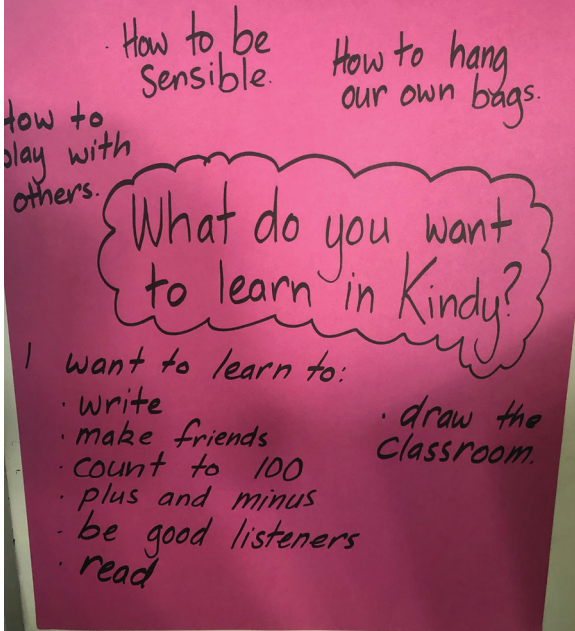 · How to be
Sensible.
How to hang
our own bags.
How to
play with
others.
What do you want
to learn in Kindy?
I want to learn to:
· write
· make friends
· count to 100
· plus and minus
· be good listeners
· read
· draw the
classroom.